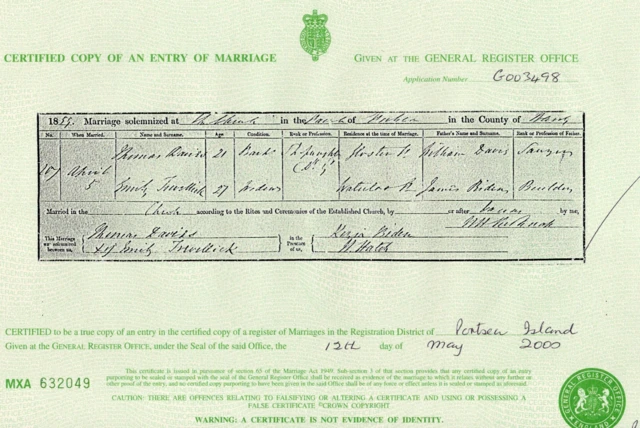 CERTIFIED COPY OF AN ENTRY OF MARRIAGE
GIVEN AT THE GENERAL REGISTER OFFICE
Application Number G003498
Marriage solemnized at in the of in the County of
No. When Married. Name and Surname. Age Condition. Rank or Profession. Residence at the time of Marriage. Father's Name and Surname. Rank or Profession of Father.
107 April 5 Thomas Davis 21 William Davis Sawyer
Emily 27 Waterloo James Biden Builder
Married in the Church according to the Rites and Ceremonies of the Established Church, by or after by me,
This Marriage was solemnized between us, Thomas Davis in the Presence of us, Kezia Biden
Emily
CERTIFIED to be a true copy of an entry in the certified copy of a register of Marriages in the Registration District of Portsea Island
Given at the GENERAL REGISTER OFFICE, under the Seal of the said Office, the 12th day of May 2000
MXA 632049
This certificate is issued in pursuance of section 65 of the Marriage Act 1949. Sub-section 3 of that section provides that any certified copy of an entry
purporting to be sealed or stamped with the seal of the General Register Office shall be received as evidence of the marriage to which it relates without any further or
other proof of the entry, and no certified copy purporting to have been given in the said Office shall be of any force or effect unless it is sealed or stamped as aforesaid.
CAUTION: THERE ARE OFFENCES RELATING TO FALSIFYING OR ALTERING A CERTIFICATE AND USING OR POSSESSING A
FALSE CERTIFICATE ©CROWN COPYRIGHT
WARNING: A CERTIFICATE IS NOT EVIDENCE OF IDENTITY.